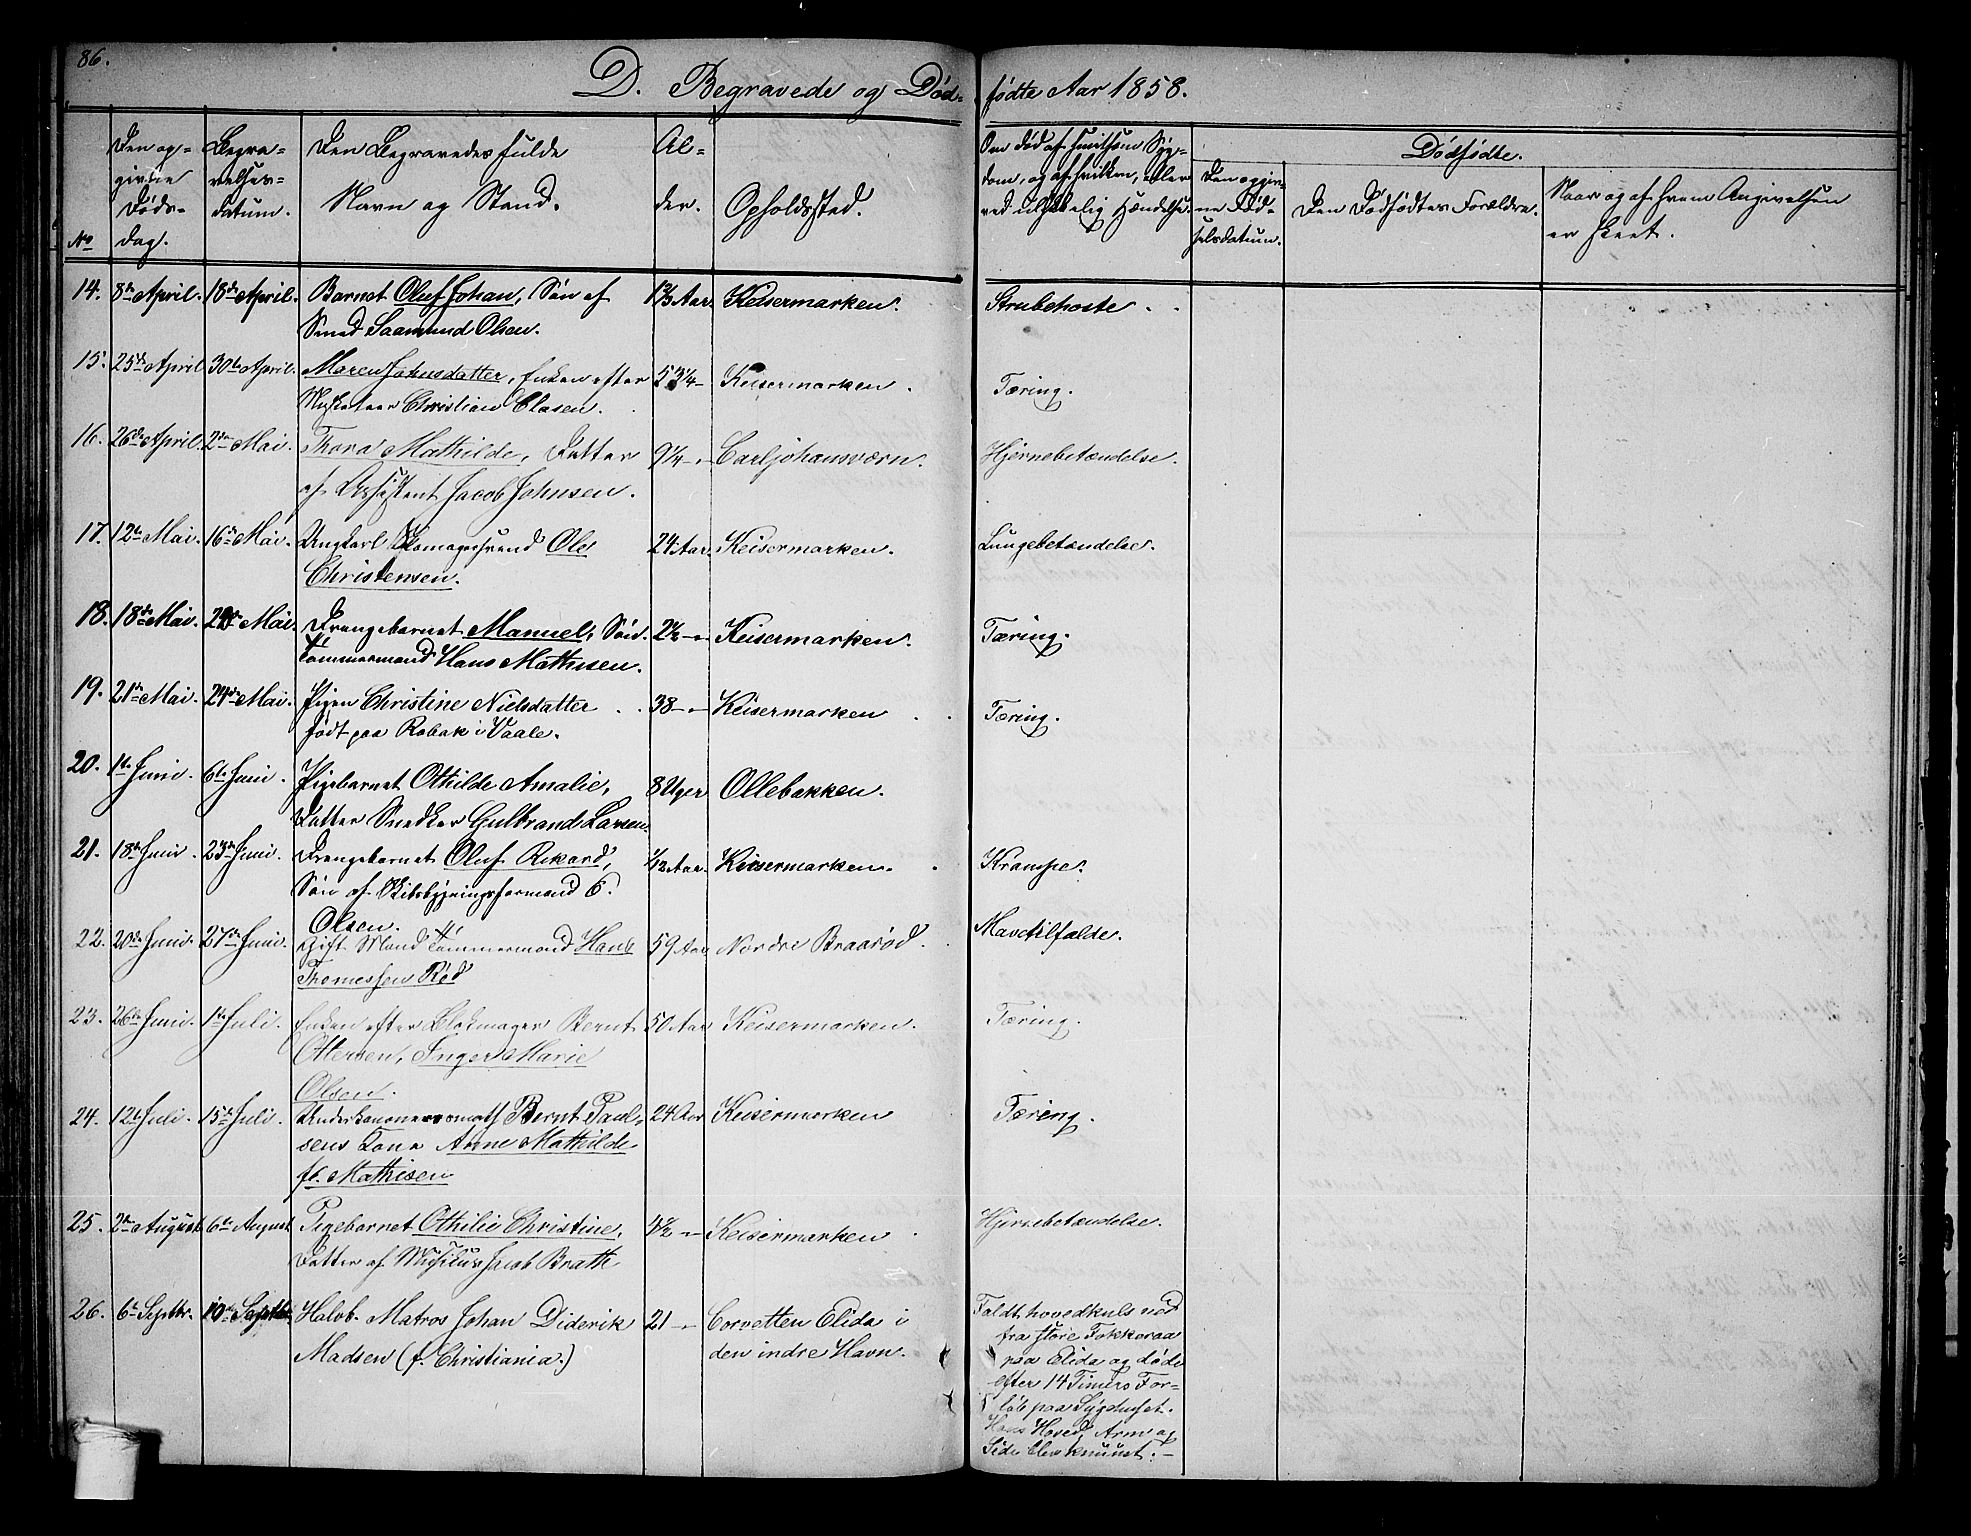 86.
D. Begravede og Død-
fødte Aar 1858.
No
Den op-
givne
Døds-
dag.
Begra-
velses-
datum.
Den Begravedes fulde
Navn og Stand.
Al-
der.
Opholdssted.
Om død af smitsom Syg-
dom, og af hvilken, eller
ved ulykkelig Hændelse.
Dødfødte.
Den opgiv-
ne Fød-
selsdatum.
Den Dødfødtes Forældre.
Naar og af hvem Angivelsen
er skeet.
14. 8de April. 18de April. Barnet Oluf Johan, Søn af 1 Aar. Keisermarken. Strubehoste
Smed Saamund Olsen.
15. 25de April 30te April. Maren Johnsdatter, Enken efter 53¼ - Keisermarken. Tæring.
Musketeer Christian Olasen.
16. 26de April. 2den Mai. Thora Mathilde, Datter 9¼ - " Carljohansværn. Hjernebetændelse.
af Assistent Jacob Johnsen.
17. 12te Mai. 16de Mai. Ungkarl Skomagersvend Ole 24 Aar. Keisermarken. Lungebetændelse.
Christensen.
18. 18de Mai. Mai. Drengebarnet Manuel, Søn 2½ - " Keisermarken. Tæring.
Tømmermand Hans Mathisen.
19. 21de Mai. 24de Mai. Pigen Christine Nielsdatter 38 - " Keisermarken Tæring.
født paa Robak i Vaale.
20. 1te Juni. 6te Juni. Pigebarnet Othilde Amalie, 8 Uger Ollebakken.
Datter Snedker Gulbrand Larsen.
21. 18de Juni. 23de Juni. Drengebarnet Oluf Rikard, 1/12 Aar. Keisermarken. Krampe.
Søn af Skibsbygningsformand C.
Olsen.
22. 20de Juni. 27de Juni. Gift Mand Tømmermand Hans 59 Aar Nordre Braarød. Mavetilfælde.
Thomessen Rød
23. 26de Juni. 1te Juli. Enken efter Blokmager Bernt 50 Aar Keisermarken. Tæring.
Ottersen, Inger Marie
Olsen.
24. 12te Juli. 15de Juli. Underkanoneersmath Bernt Paul- 24 Aar Keisermarken Tæring.
sens Kone Anne Mathilde
f. Mathisen
25. 2den August 6te August Pigebarnet Othilie Christine, 4½ - " Keisermarken Hjernebetændelse.
Datter af Musikus Jacob Brath
26. 6te Septbr. 10de Septbr. Halvb. Matros Johan Diderik 21 - " Corvetten Elida i
Madsen (f. Christiania.) den indre Havn.
Faldt hovedkuls ned
fra store Fokkeraa
paa Elida og døde
efter 14 Timers For-
løb paa Sygehuset.
Hans Hoved, Arm og
Side blev knuust. -